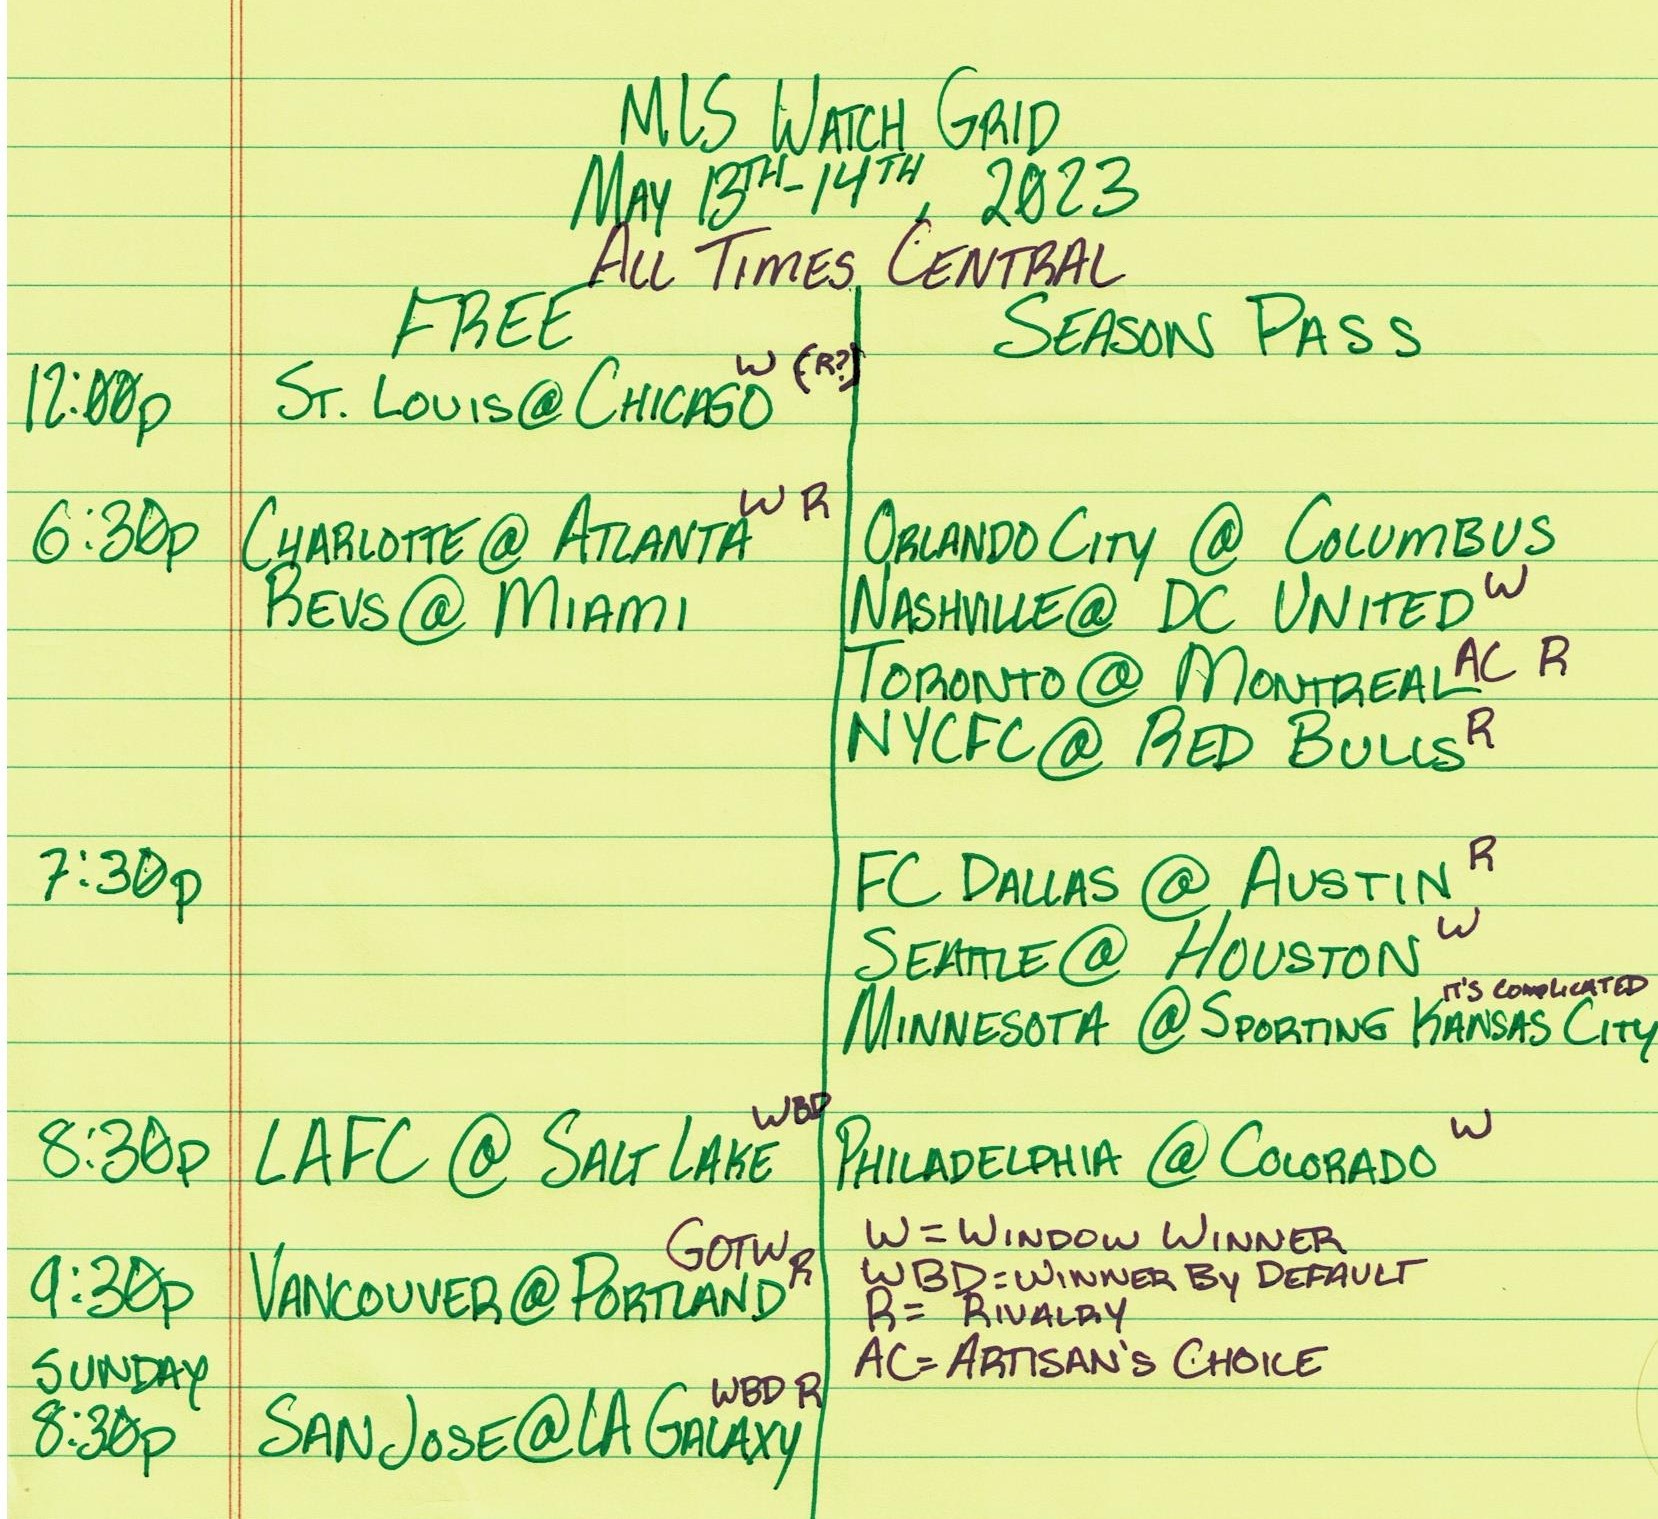 MLS WATCH GRID
MAY 13TH-14TH, 2023
ALL TIMES CENTRAL
FREE SEASON PASS
12:00p ST. LOUIS @ CHICAGO W (R?)
6:30p CHARLOTTE @ ATLANTA W R ORLANDO CITY @ COLUMBUS
REVS @ MIAMI NASHVILLE @ DC UNITED W
TORONTO @ MONTREAL AC R
NYCFC @ RED BULLS R
7:30p FC DALLAS @ AUSTIN R
SEATTLE @ HOUSTON W
IT'S COMPLICATED
MINNESOTA @ SPORTING KANSAS CITY
8:30p LAFC @ SALT LAKE WBD PHILADELPHIA @ COLORADO W
9:30p VANCOUVER @ PORTLAND GOTW R
W = WINDOW WINNER
WBD = WINNER BY DEFAULT
R = RIVALRY
AC = ARTISAN'S CHOICE
SUNDAY
8:30p SAN JOSE @ LA GALAXY WBD R